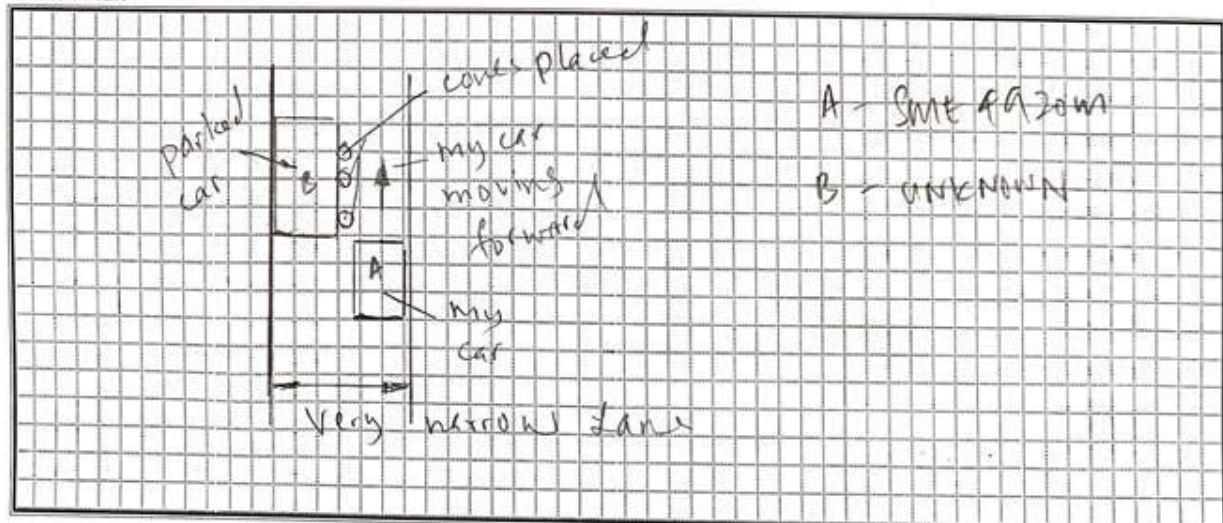 cones placed
parked
car
B
my car
moving
forward
A
my
car
Very narrow Lane
A - SME 4920M
B - UNKNOWN